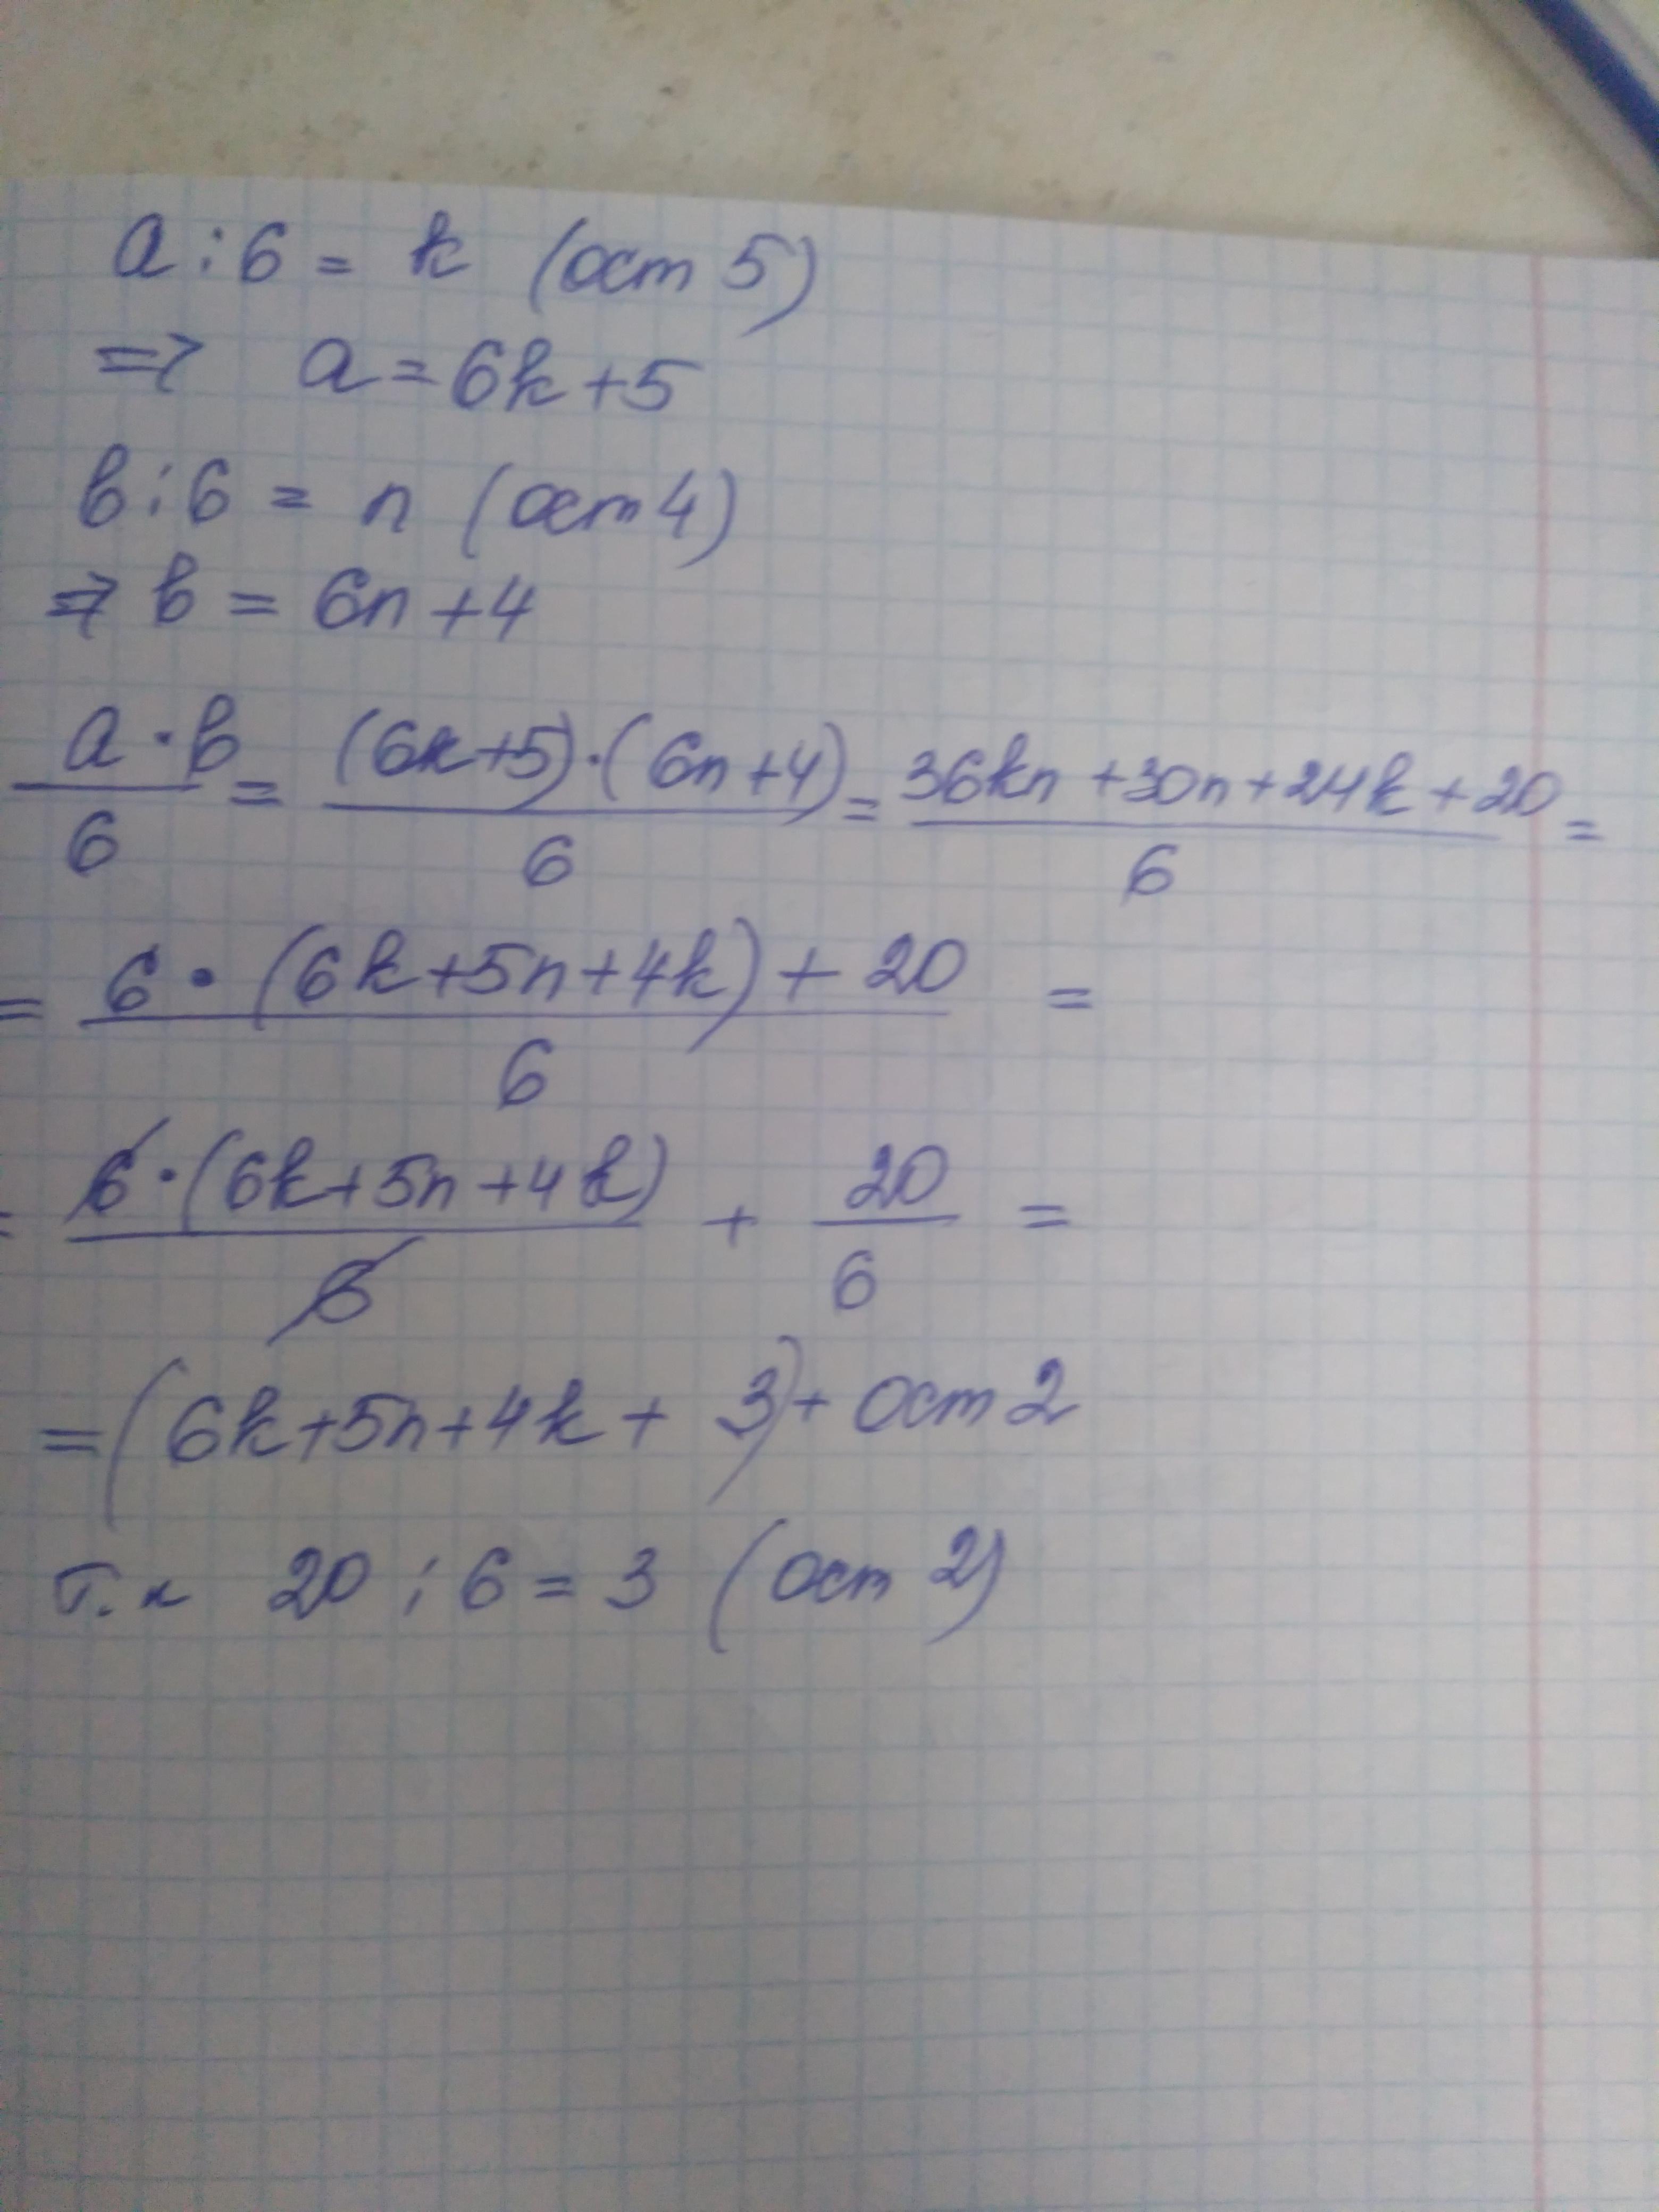 a : 6 = k (ост 5)
=> a = 6k + 5
b : 6 = n (ост 4)
=> b = 6n + 4
a · b / 6 = (6k+5)·(6n+4) / 6 = 36kn + 30n + 24k + 20 / 6 =
= 6 · (6k + 5n + 4k) + 20 / 6 =
= 6 · (6k + 5n + 4k) / 6 + 20 / 6 =
= (6k + 5n + 4k + 3) + ост 2
т.к 20 : 6 = 3 (ост 2)